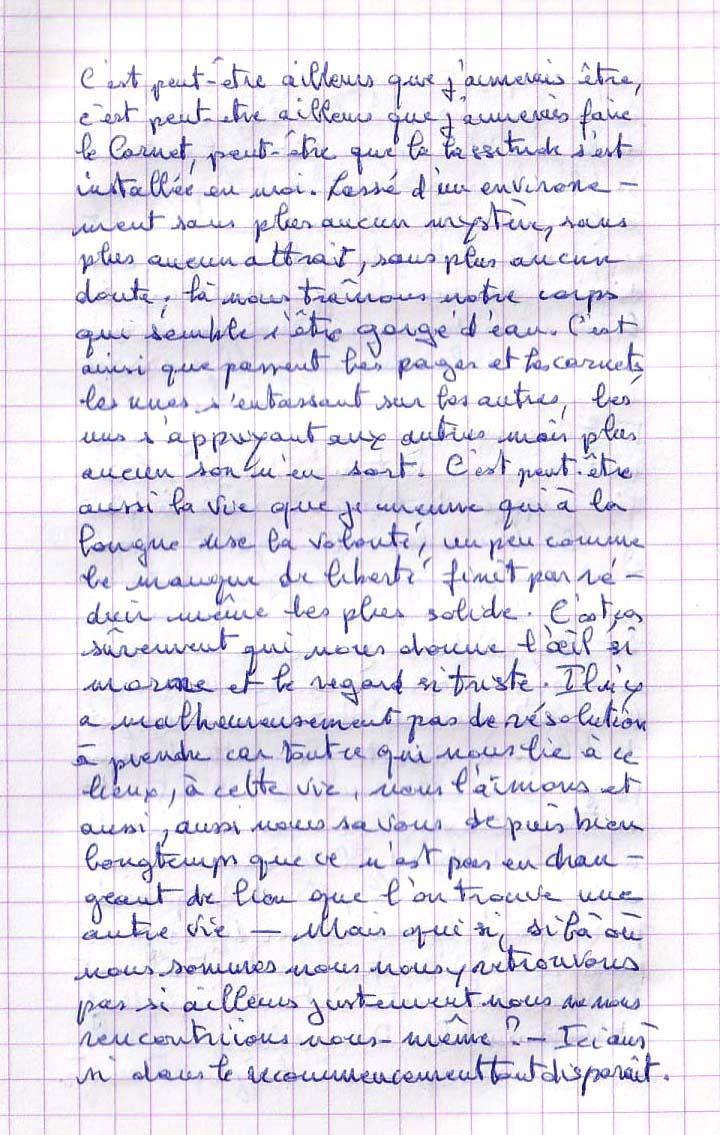 C'est peut-être ailleurs que j'aimerais être,
c'est peut-être ailleurs que j'aimerais faire
le Carnet, peut-être que la lassitude s'est
installée en moi. Lassé d'un environe-
ment sans plus aucun mystère, sans
plus aucun attrait, sans plus aucun
doute, là nous traînons notre corps
qui semble s'être gorgé d'eau. C'est
ainsi que passent les pages et les carnets
les unes s'entassant sur les autres, les
uns s'appuyant aux autres mais plus
aucun son n'en sort. C'est peut-être
aussi la vie que je mène qui à la
longue use la volonté, un peu comme
le manque de liberté finit par ré-
duir même les plus solide. C'est ça
sûrement qui nous donne l'œil si
morne et le regard si triste. Il n'y
a malheureusement pas de résolution
à prendre car tout ce qui nous lie à ce
lieux, à cette vie, nous l'aimons et
aussi, aussi nous savons depuis bien
longtemps que ce n'est pas en chan-
geant de lieu que l'on trouve une
autre vie — Mais qui si, si là où
nous sommes nous nous y retrouvons
pas si ailleurs justement nous ne nous
rencontriions nous-même ? — Ici aus
si dans le recommencement tout disparaît.